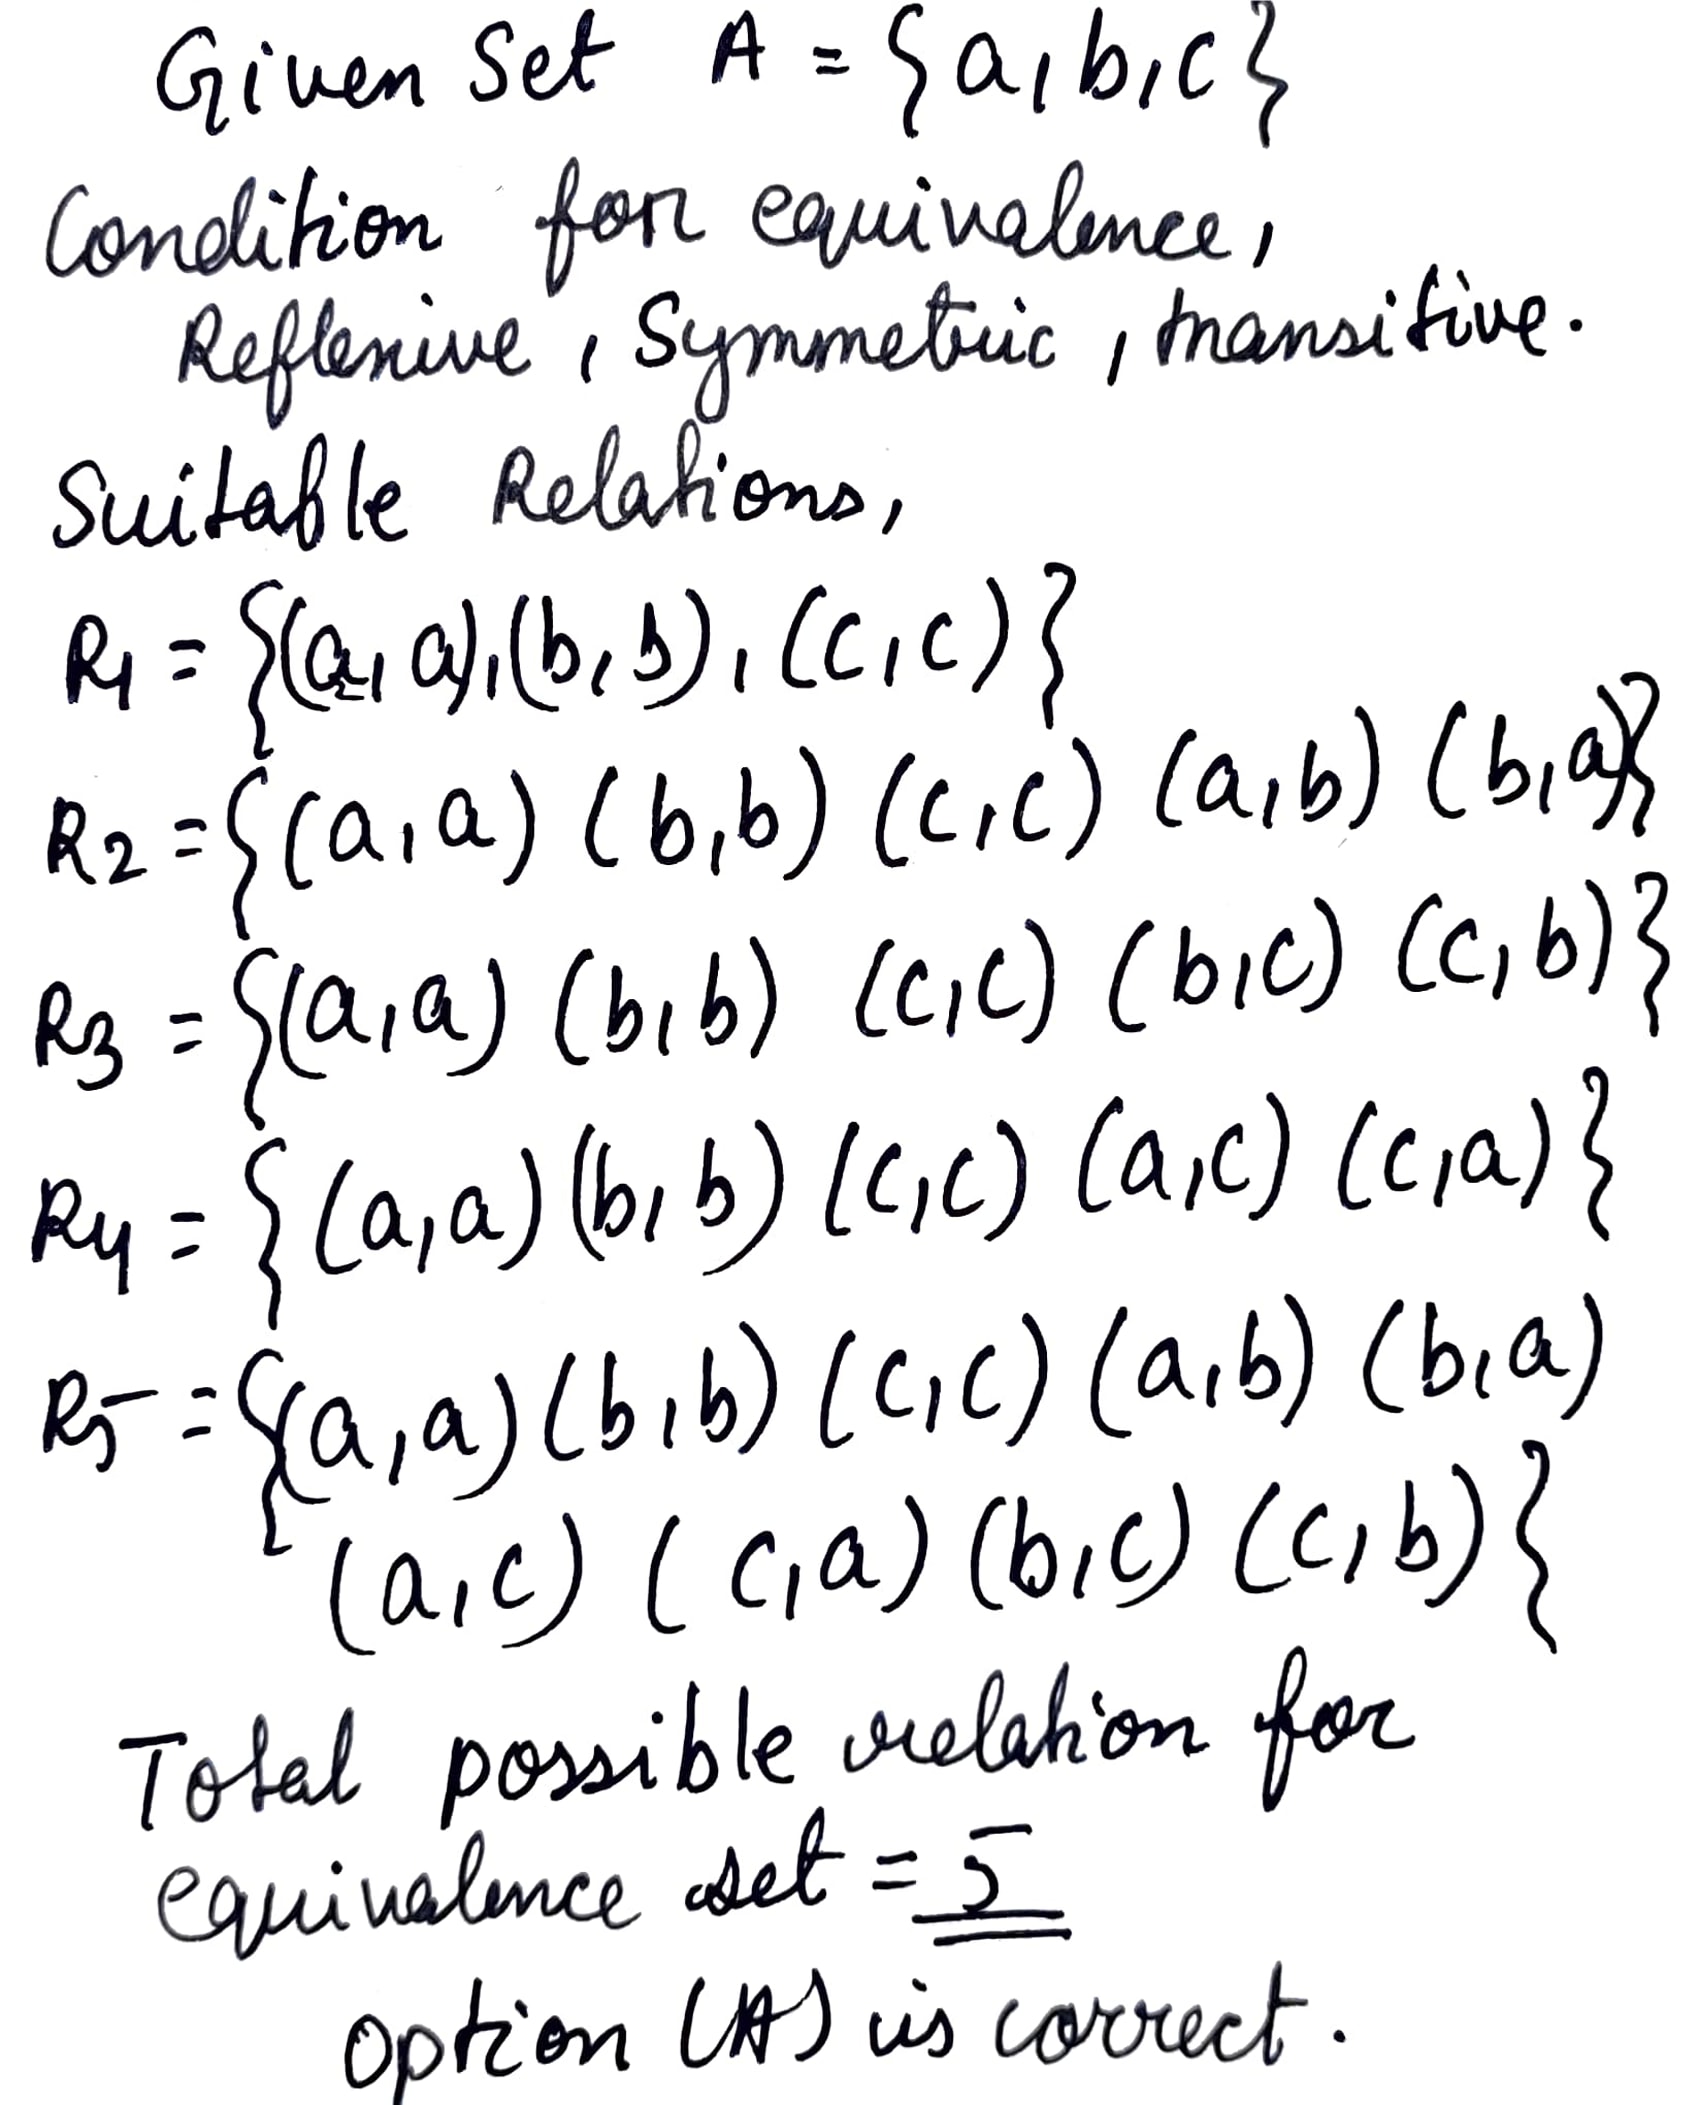 Given Set A = {a,b,c}
Condition for equivalence,
Reflexive, Symmetric, transitive.
Suitable Relations,
R1 = {(a,a),(b,b),(c,c)}
R2 = {(a,a) (b,b) (c,c) (a,b) (b,a)}
R3 = {(a,a) (b,b) (c,c) (b,c) (c,b)}
R4 = {(a,a) (b,b) (c,c) (a,c) (c,a)}
R5 = {(a,a) (b,b) (c,c) (a,b) (b,a)
(a,c) (c,a) (b,c) (c,b)}
Total possible relation for
equivalence set = 5
option (A) is correct.